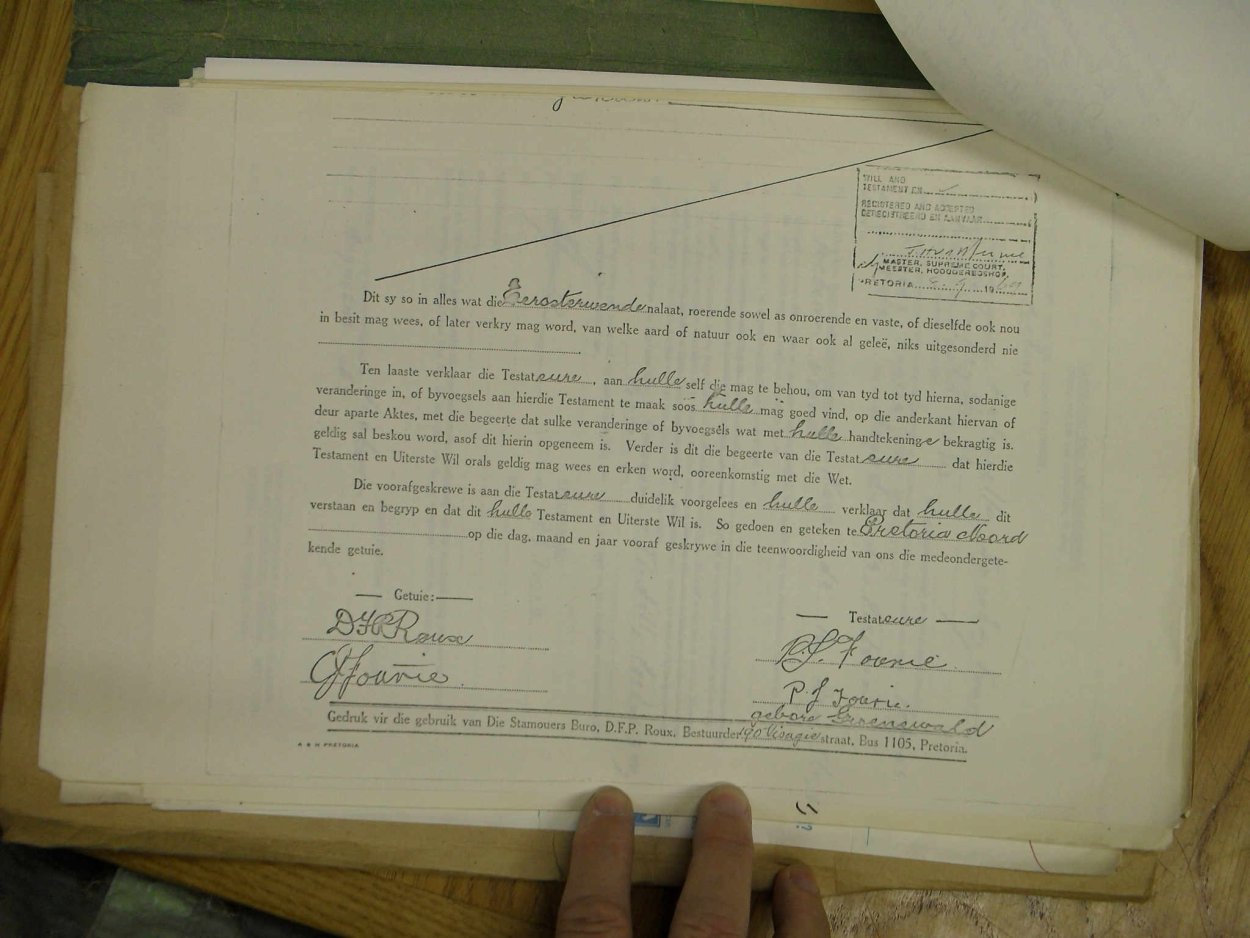 WILL AND
TESTAMENT EN
REGISTERED AND ACCEPTED
GEREGISTREERD EN AANVAAR
MASTER, SUPREME COURT,
MEESTER, HOOGGEREGSHOF,
PRETORIA 19
Dit sy so in alles wat die Eerssterwende nalaat, roerende sowel as onroerende en vaste, of dieselfde ook nou
in besit mag wees, of later verkry mag word, van welke aard of natuur ook en waar ook al geleë, niks uitgesonderd nie
Ten laaste verklaar die Testateure, aan hulle self die mag te behou, om van tyd tot tyd hierna, sodanige
veranderinge in, of byvoegsels aan hierdie Testament te maak soos hulle mag goed vind, op die anderkant hiervan of
deur aparte Aktes, met die begeerte dat sulke veranderinge of byvoegsels wat met hulle handtekeninge bekragtig is.
geldig sal beskou word, asof dit hierin opgeneem is. Verder is dit die begeerte van die Testateure dat hierdie
Testament en Uiterste Wil orals geldig mag wees en erken word, ooreenkomstig met die Wet.
Die voorafgeskrewe is aan die Testateure duidelik voorgelees en hulle verklaar dat hulle dit
verstaan en begryp en dat dit hulle Testament en Uiterste Wil is. So gedoen en geteken te Pretoria Noord
op die dag, maand en jaar vooraf geskrywe in die teenwoordigheid van ons die medeondergete-
kende getuie.
Getuie:
Testateure
DFP Roux
P.S. Fourie
GJ Fourie
P. J Fourie.
gebore Groenewald
Gedruk vir die gebruik van Die Stamouers Buro, D.F.P. Roux, Bestuurder, 140 Visagie straat, Bus 1105, Pretoria.
A & H PRETORIA
11